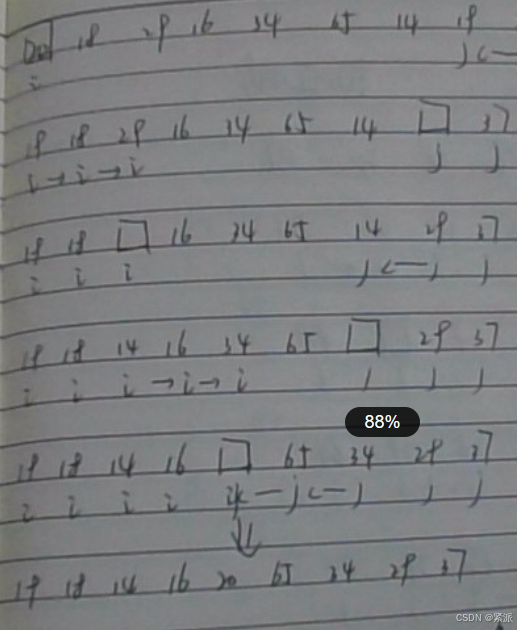 20 18 29 16 34 65 14 19
i j ←
19 18 29 16 34 65 14 □ 37
i → i → i j j
19 18 □ 16 34 65 14 29 37
i i i j ← j j
19 18 14 16 34 65 □ 29 37
i i i → i → i j j j
88%
19 18 14 16 □ 65 34 29 37
i i i i i ← j ← j j j
⇓
19 18 14 16 20 65 34 29 37
CSDN @紧派